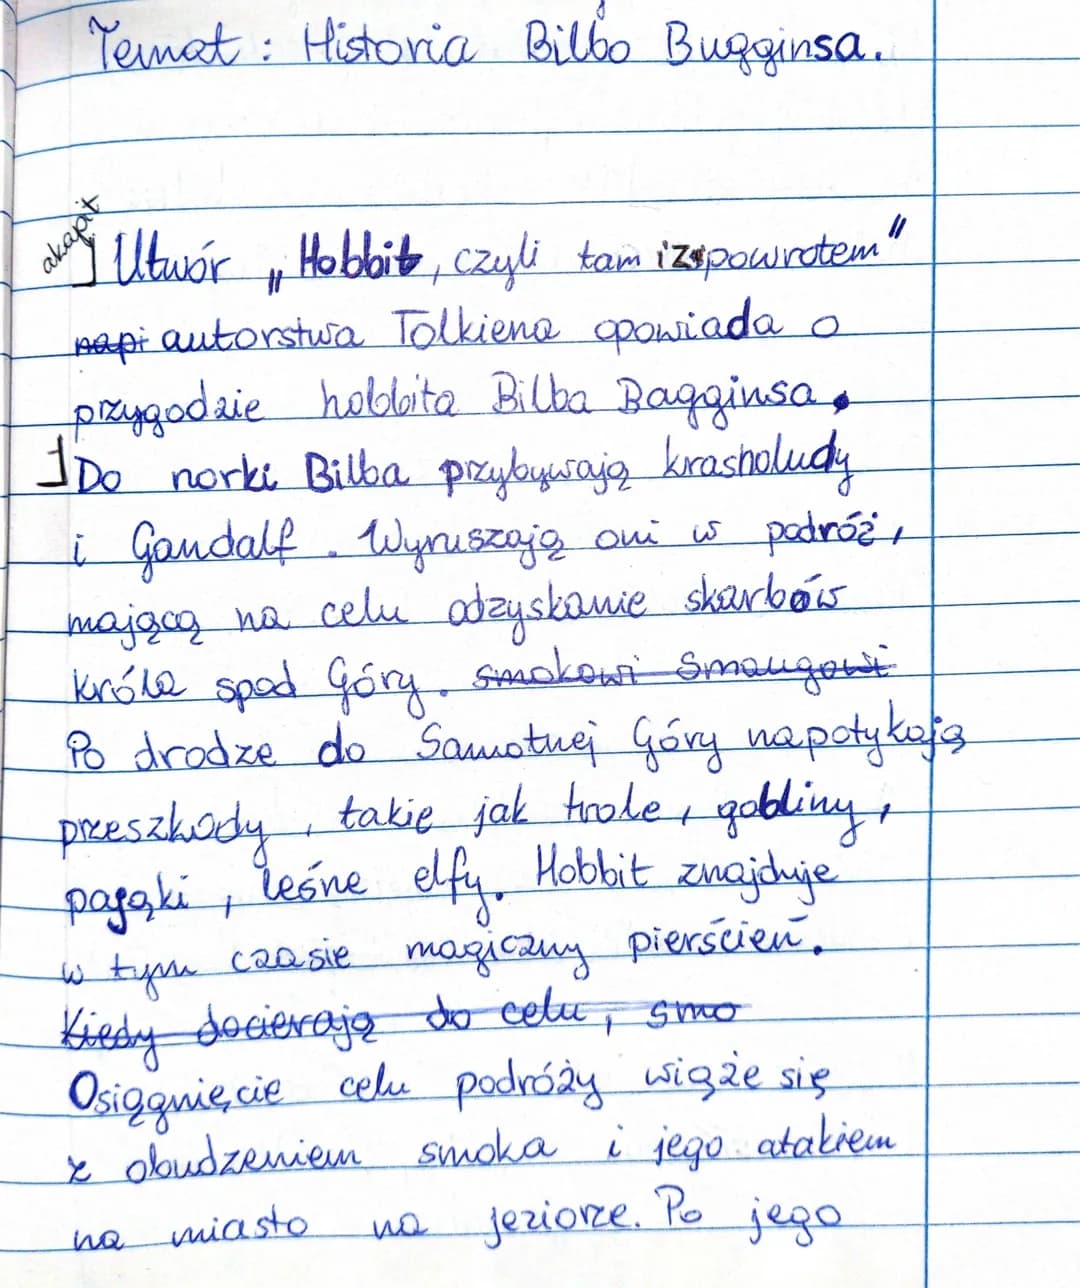 Temat: Historia Bilbo Bugginsa.
akapit
Utwór „Hobbit, czyli tam i z powrotem"
napi autorstwa Tolkiena opowiada o
przygodzie hobbita Bilba Bagginsa.
Do norki Bilba przybywają krasnoludy
i Gandalf. Wyruszają oni w podróż,
mającą na celu odzyskanie skarbów
króla spod Góry. smokowi Smaugowi
Po drodze do Samotnej Góry napotykają
przeszkody, takie jak trole, gobliny,
pająki, leśne elfy. Hobbit znajduje
w tym czasie magiczny pierścień.
Kiedy docierają do celu, smo
Osiągnięcie celu podróży wiąże się
z obudzeniem smoka i jego atakiem
na miasto na jeziorze. Po jego